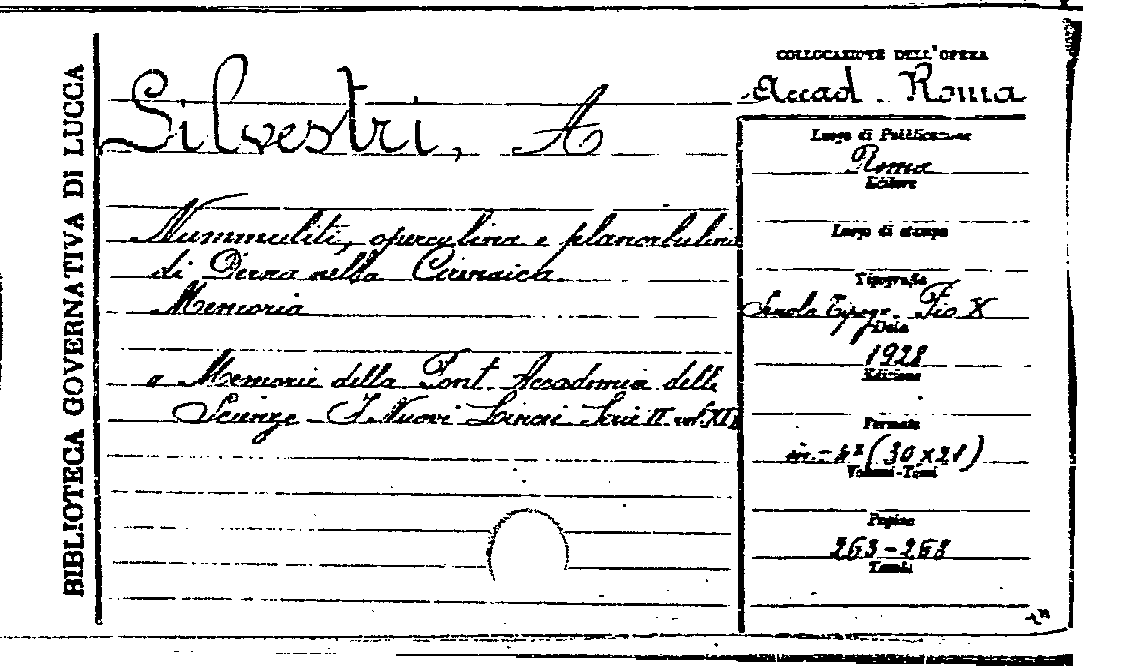 BIBLIOTECA GOVERNATIVA DI LUCCA
Silvestri, A
Nummuliti, operculina e planorbulina
di Derna nella Cirenaica
Memoria
Memorie della Pont. Accademia delle
Scienze - I Nuovi Lincei Serie II vol. XI
COLLOCAZIONE DELL'OPERA
Accad. Roma
Luogo di Pubblicazione
Roma
Editore
Luogo di stampa
Tipografia
Scuola Tipogr. Pio X
Data
1928
Edizione
Formato
in-4º (30x21)
Volumi-Tomi
Pagine
263-268
Tavole